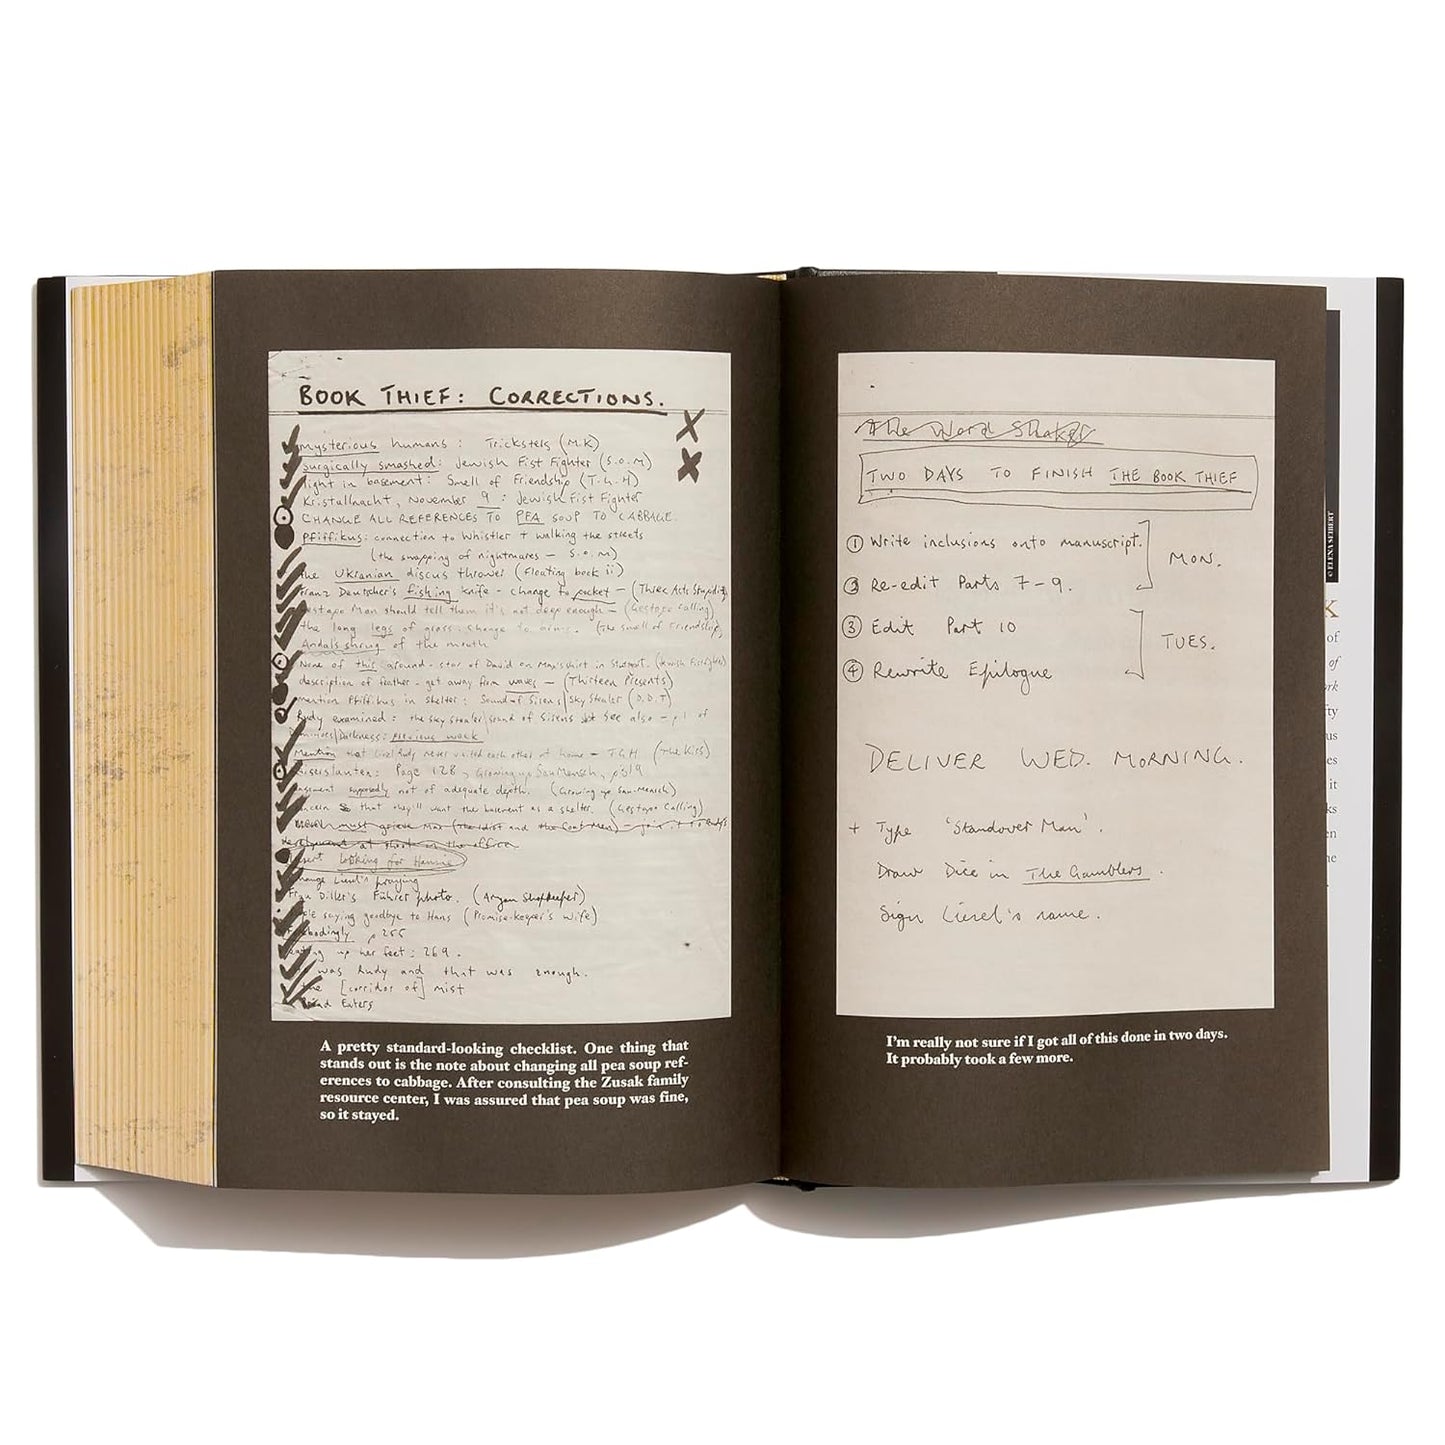 BOOK THIEF: CORRECTIONS.
mysterious humans: Tricksters (M.K)
surgically smashed: Jewish Fist Fighter (S.O.M)
light in basement: Smell of Friendship (T.G.H)
Kristallnacht, November 9: Jewish Fist Fighter
CHANGE ALL REFERENCES TO PEA SOUP TO CABBAGE.
Pfiffikus: connection to Whistler + walking the streets
(the swapping of nightmares - S.O.M)
the Ukranian discus thrower (Floating book ii)
Franz Deutscher's fishing knife - change to pocket - (Three Acts Stupidity
Gestapo Man should tell them it's not deep enough - (Gestapo Calling)
the long legs of grass: change to arms. (the smell of friendship)
shrug of the mouth
None of this around - star of David on Max's shirt in Stuttgart. (Jewish Fistfighter)
description of feather - get away from waves - (Thirteen Presents)
mention Pfiffikus in shelter: Sound of Sirens/Sky Stealer (D.D.T)
Rudy examined: the sky stealer/sound of sirens see also - p1 of
Dominoes/Darkness: previous work
Mention that Liesel/Rudy never visited each other at home - T.G.H (The Kiss)
Page 128, Growing up Saumensch, p
basement supposedly not of adequate depth. (Growing up Saumensch)
that they'll want the basement as a shelter. (Gestapo Calling)
must grieve Max (the Idiot and the Coat Men) - join it to Rudy's
at the office
insert looking for Hansie
change Liesel's praying
Frau Diller's Führer photo. (Aryan Shopkeeper)
saying goodbye to Hans (Promise-keeper's wife)
Forebodingly p 255
up her feet: 269.
was Rudy and that was enough.
the [corridor of] mist
Bread Eaters
A pretty standard-looking checklist. One thing that
stands out is the note about changing all pea soup ref-
erences to cabbage. After consulting the Zusak family
resource center, I was assured that pea soup was fine,
so it stayed.
The Word Shaker
TWO DAYS TO FINISH THE BOOK THIEF
① Write inclusions onto manuscript.
MON.
② Re-edit Parts 7-9.
③ Edit Part 10
TUES.
④ Rewrite Epilogue
DELIVER WED. MORNING.
+ Type 'Standover Man'.
Draw Dice in The Gamblers.
Sign Liesel's name.
I'm really not sure if I got all of this done in two days.
It probably took a few more.
© ELENA SEIBERT
K
of
of
rk
fty
us
es
it
ks
en
he